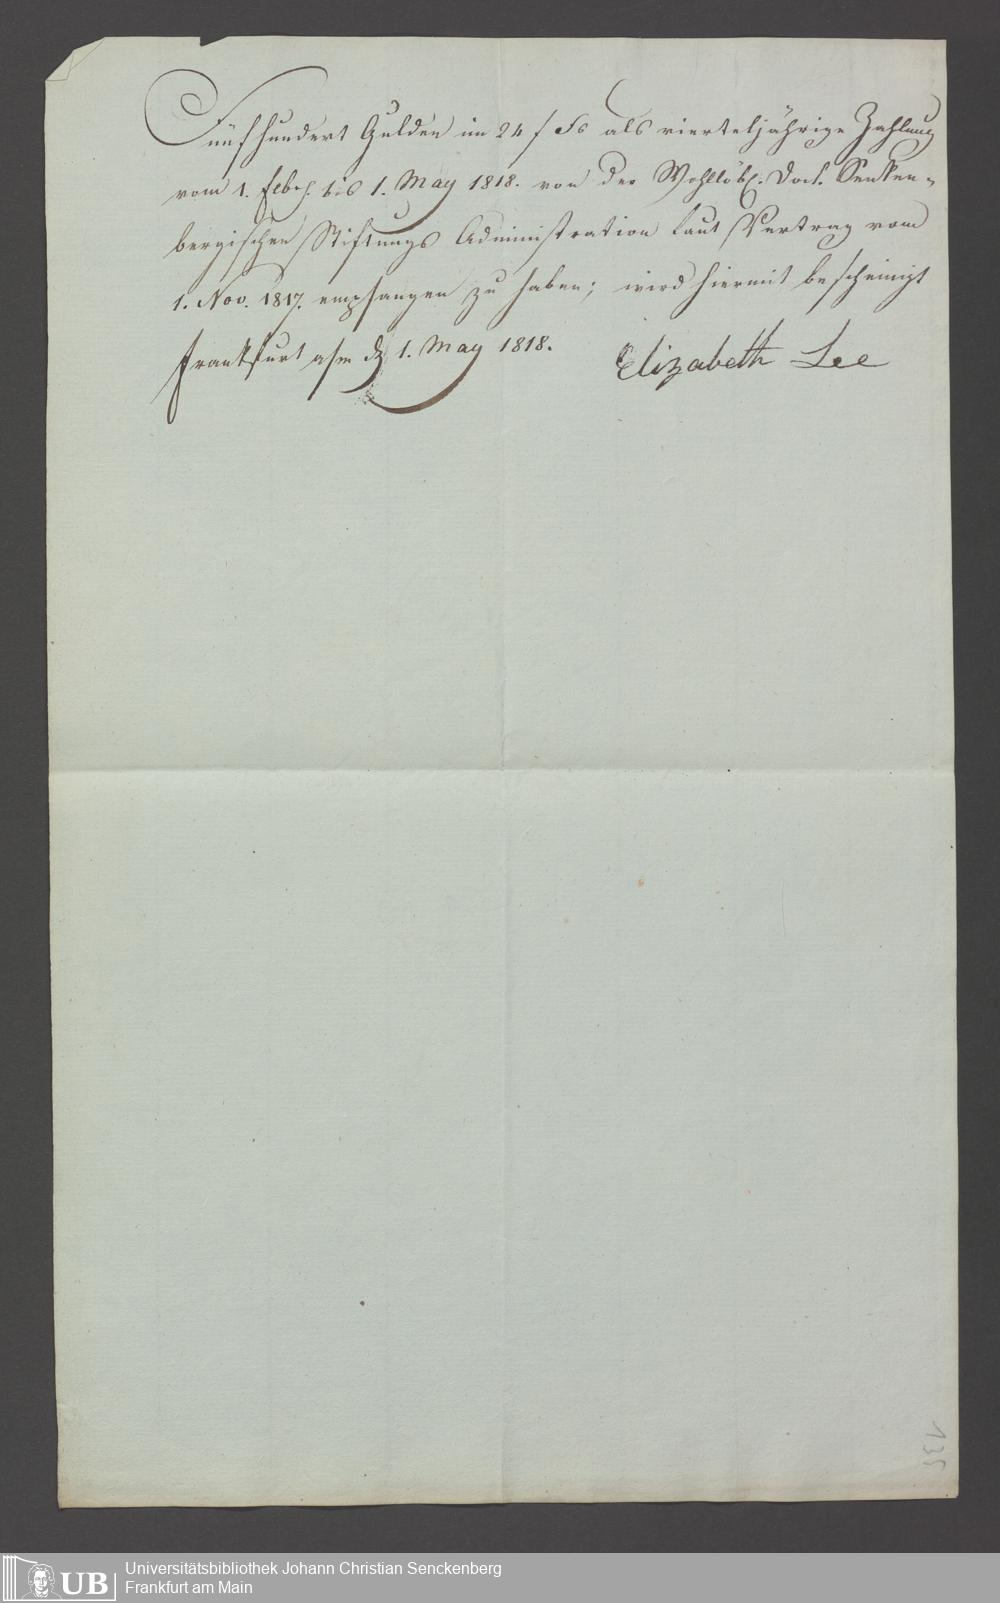 Fünfhundert Gulden im 24 f Fs als vierteljährige Zahlung
vom 1. Febr. bis 1. May 1818. von der Wohllöbl. Doct. Senken-
bergischen Stiftungs Administration laut Vertrag vom
1. Nov. 1817. empfangen zu haben; wird hiermit bescheinigt
Frankfurt a/m d. 1. May 1818.
Elizabeth Lee
135
UB
Universitätsbibliothek Johann Christian Senckenberg
Frankfurt am Main